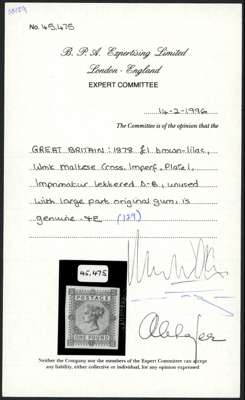 No. 45,475
B. P. A. Expertising Limited
London - England
EXPERT COMMITTEE
14-2-1996
The Committee is of the opinion that the
GREAT BRITAIN: 1878 £1 brown-lilac,
Wmk Maltese Cross, Imperf, Plate 1,
Imprimatur lettered D-B, unused
with large part original gum, is
genuine. (129)
45,475
POSTAGE
ONE POUND
Neither the Company nor the members of the Expert Committee can accept
any liability, either collective or individual, for any opinion expressed